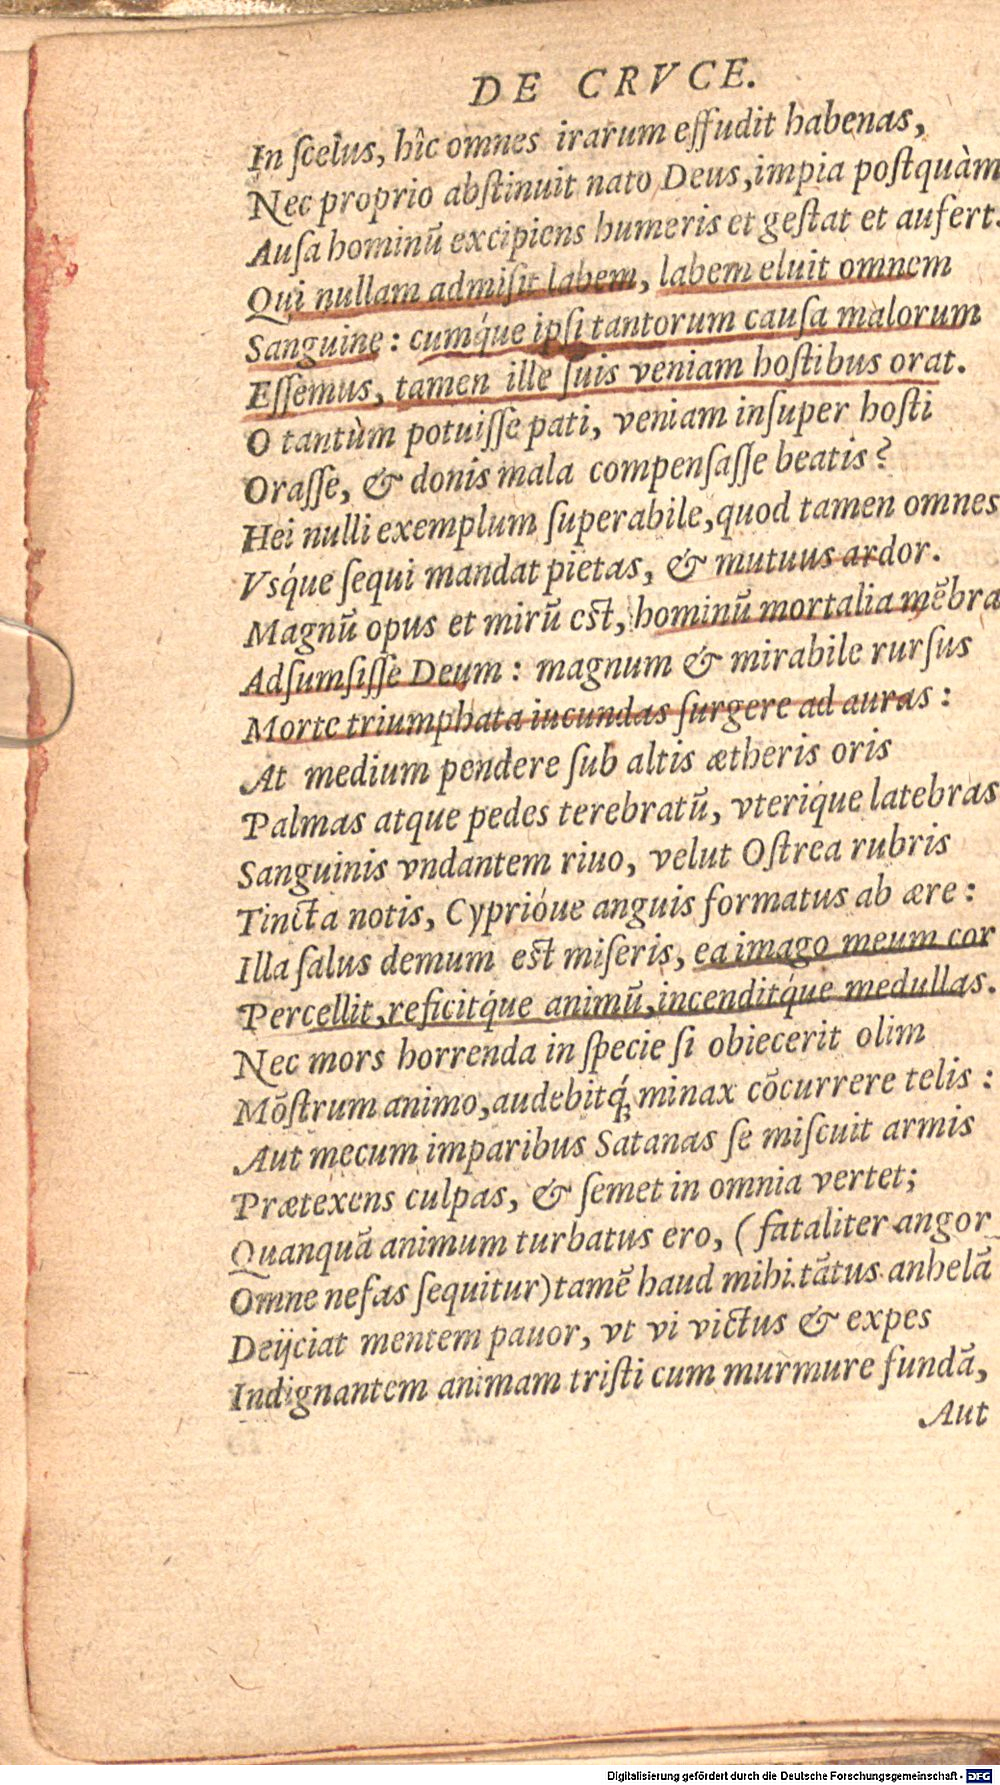 DE CRVCE.
In ſcelus, hîc omnes irarum effudit habenas,
Nec proprio abſtinuit nato Deus, impia poſtquàm
Auſa hominũ excipiens humeris et geſtat et aufert.
Qui nullam admiſit labem, labem eluit omnem
Sanguine: cumq́ue ipſi tantorum cauſa malorum
Eſſemus, tamen ille ſuis veniam hoſtibus orat.
O tantùm potuiſſe pati, veniam inſuper hoſti
Oraſſe, & donis mala compenſaſſe beatis?
Hei nulli exemplum ſuperabile, quod tamen omnes
Vsq́ue ſequi mandat pietas, & mutuus ardor.
Magnũ opus et mirũ est, hominũ mortalia mẽbra
Adſumſiſſe Deum: magnum & mirabile rurſus
Morte triumphata iucundas ſurgere ad auras:
At medium pendere ſub altis ætheris oris
Palmas atque pedes terebratũ, vteriq́ue latebras
Sanguinis vndantem riuo, velut Oſtrea rubris
Tincta notis, Cyprióue anguis formatus ab ære:
Illa ſalus demum est miſeris, ea imago meum cor
Percellit, reficitq́ue animũ, incenditq́ue medullas.
Nec mors horrenda in ſpecie ſi obiecerit olim
Mõſtrum animo, audebitq́; minax cõcurrere telis:
Aut mecum imparibus Satanas ſe miſcuit armis
Prætexens culpas, & ſemet in omnia vertet;
Quanquã animum turbatus ero, (fataliter angor
Omne nefas ſequitur) tamẽ haud mihi tãtus anhelã
Deijciat mentem pauor, vt vi victus & expes
Indignantem animam triſti cum murmure fundã,
Aut
Digitalisierung gefördert durch die Deutsche Forschungsgemeinschaft - DFG